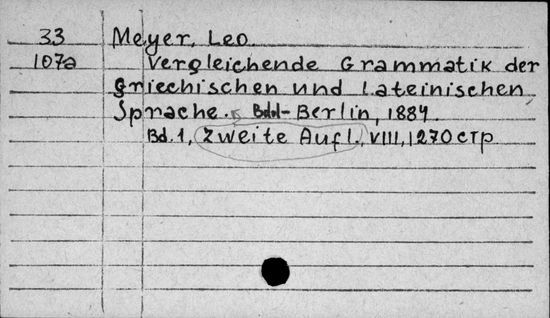 33 Meyer, Leo.
107a Vergleichende Grammatik der
griechischen und lateinischen
Sprache. Bd.1- Berlin, 1884.
Bd. 1, Zweite Aufl., VIII, 1270 стр